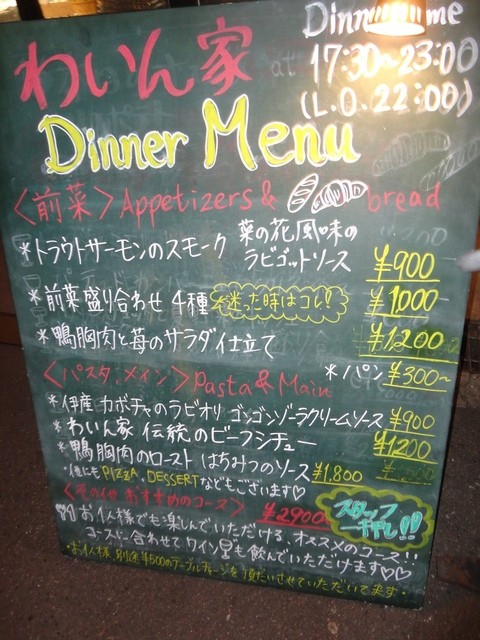 わいん家
Dinner Time
at 17:30~23:00
(L.O.22:00)
Dinner Menu
<前菜> Appetizers & bread
*トラウトサーモンのスモーク 菜の花風味のラビゴットソース ¥900
*前菜盛り合わせ 4種 迷った時はコレ!! ¥1000
*鴨胸肉と苺のサラダ仕立て ¥1200
*パン ¥300~
<パスタ、メイン> Pasta & Main
*伊産 カボチャのラビオリ ゴンゴンゾーラクリームソース ¥900
*わいん家 伝統のビーフシチュー ¥1200
*鴨胸肉のロースト はちみつのソース ¥1,800
・他にもPIZZA、DESSERTなどもございます♡
<その他 おすすめのコース> ¥2900 スタッフ一キヤし!!
お1人様でも楽しんでいただける、オススメのコース!!
コースに合わせてワインも飲んでいただけます♡♡
・お1人様、別途¥500のテーブルチャージを頂だいさせていただいてます・